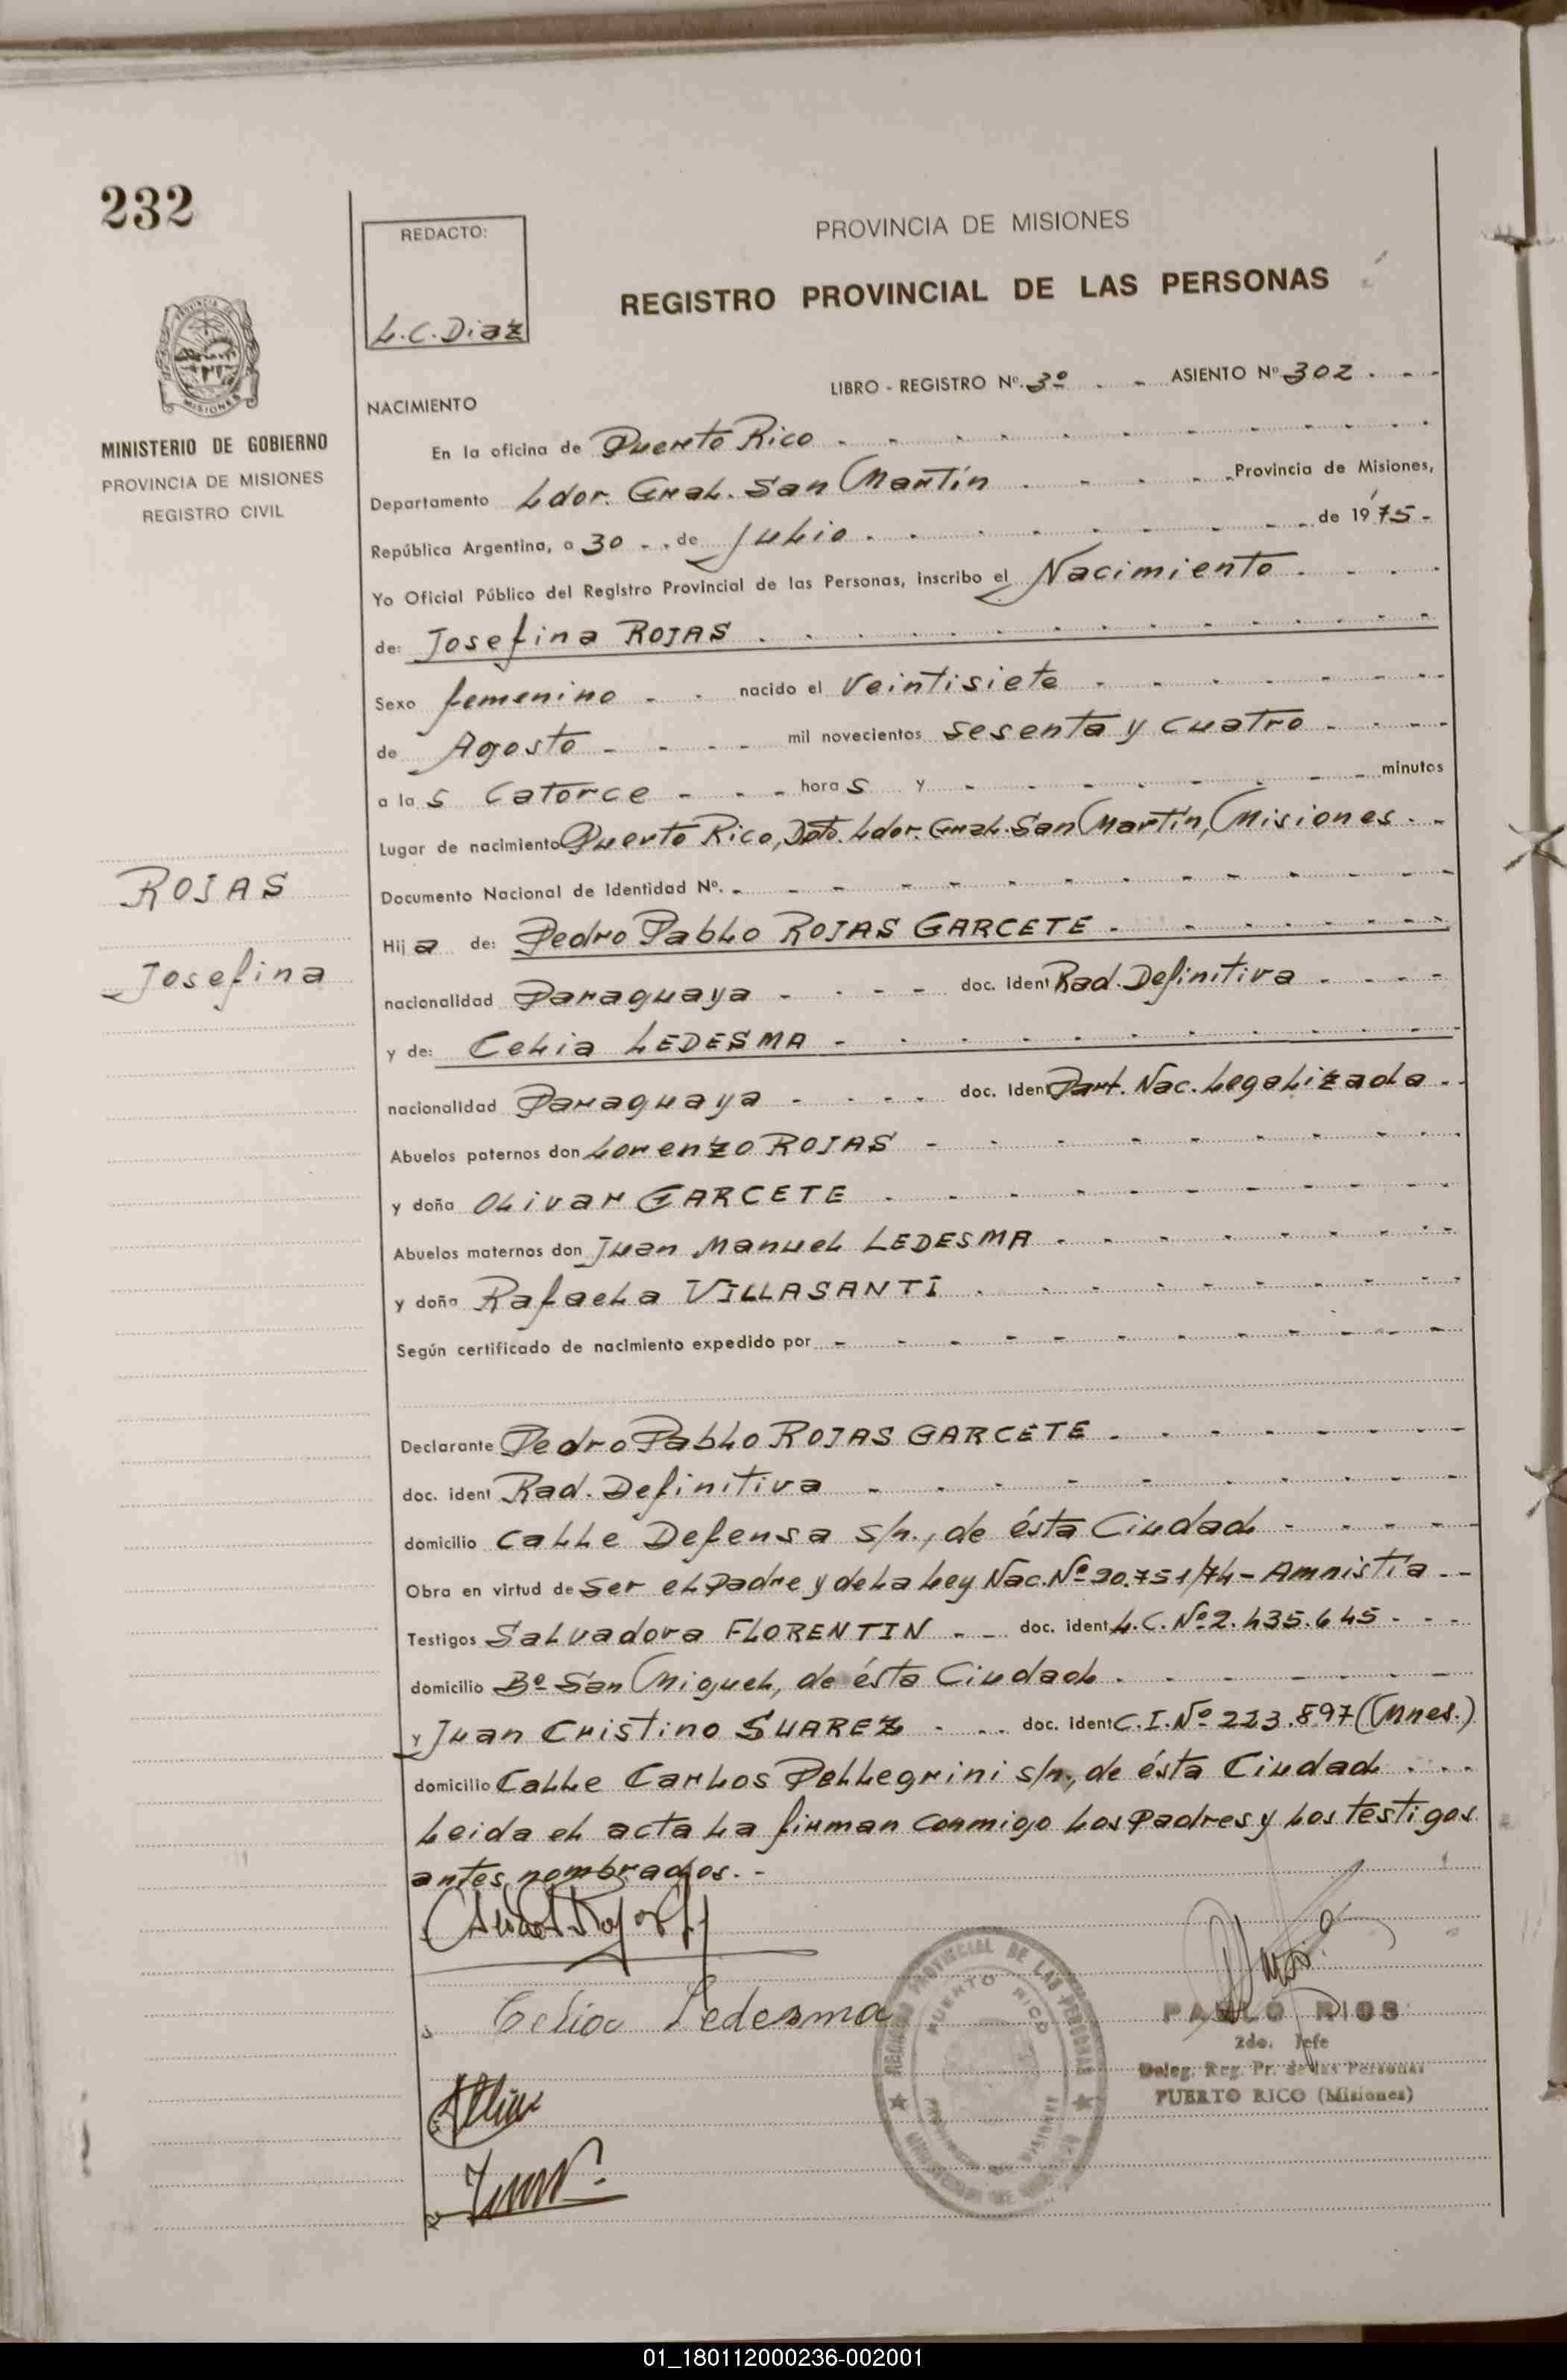 232
REDACTO:
L.C. Diaz
PROVINCIA DE MISIONES
REGISTRO PROVINCIAL DE LAS PERSONAS
PROVINCIA DE
MISIONES
MINISTERIO DE GOBIERNO
PROVINCIA DE MISIONES
REGISTRO CIVIL
LIBRO - REGISTRO Nº. 3º - ASIENTO Nº 302 - - -
NACIMIENTO
En la oficina de Puerto Rico - - -
Departamento Ldor. Gral. San Martín - - - Provincia de Misiones,
República Argentina, a 30 - - de Julio - - - de 1975 -
Yo Oficial Público del Registro Provincial de las Personas, inscribo el Nacimiento - - -
de: Josefina ROJAS - - -
Sexo femenino - - nacido el veintisiete - - -
de Agosto - - - mil novecientos sesenta y cuatro - - -
a las catorce - - - horas y - - - minutos
Lugar de nacimiento Puerto Rico, Dpto. Ldor. Gral. San Martín, Misiones. -
Documento Nacional de Identidad Nº. - - -
ROJAS
Josefina
Hija de: Pedro Pablo ROJAS GARCETE - - -
nacionalidad Paraguaya - - - doc. Ident Rad. Definitiva - - -
y de: Celia LEDESMA - - -
nacionalidad Paraguaya - - - doc. Ident Part. Nac. Legalizada - -
Abuelos paternos don Lorenzo ROJAS - - -
y doña Olivar GARCETE - - -
Abuelos maternos don Juan Manuel LEDESMA - - -
y doña Rafaela VILLASANTI - - -
Según certificado de nacimiento expedido por - - -
Declarante Pedro Pablo ROJAS GARCETE - - -
doc. ident Rad. Definitiva - - -
domicilio calle Defensa s/n., de ésta Ciudad - - -
Obra en virtud de ser el padre y de la Ley Nac. Nº 20.751/74 - Amnistía - -
Testigos Salvadora FLORENTIN - - doc. ident L.C. Nº 2.435.645 - - -
domicilio Bº San Miguel, de ésta Ciudad - - -
y Juan Cristino SUAREZ - - - doc. ident C.I. Nº 223.897 (Mnes.)
domicilio Calle Carlos Pellegrini s/n., de ésta Ciudad - - -
Leida el acta la firman conmigo los padres y los testigos
antes nombrados. -
Celia Ledesma
REGISTRO PROVINCIAL DE LAS PERSONAS
PUERTO RICO
PROVINCIA DE MISIONES
MINISTERIO DE GOBIERNO
PABLO RIOS
2do. Jefe
Deleg. Reg. Pr. de las Personas
PUERTO RICO (Misiones)
01_180112000236-002001